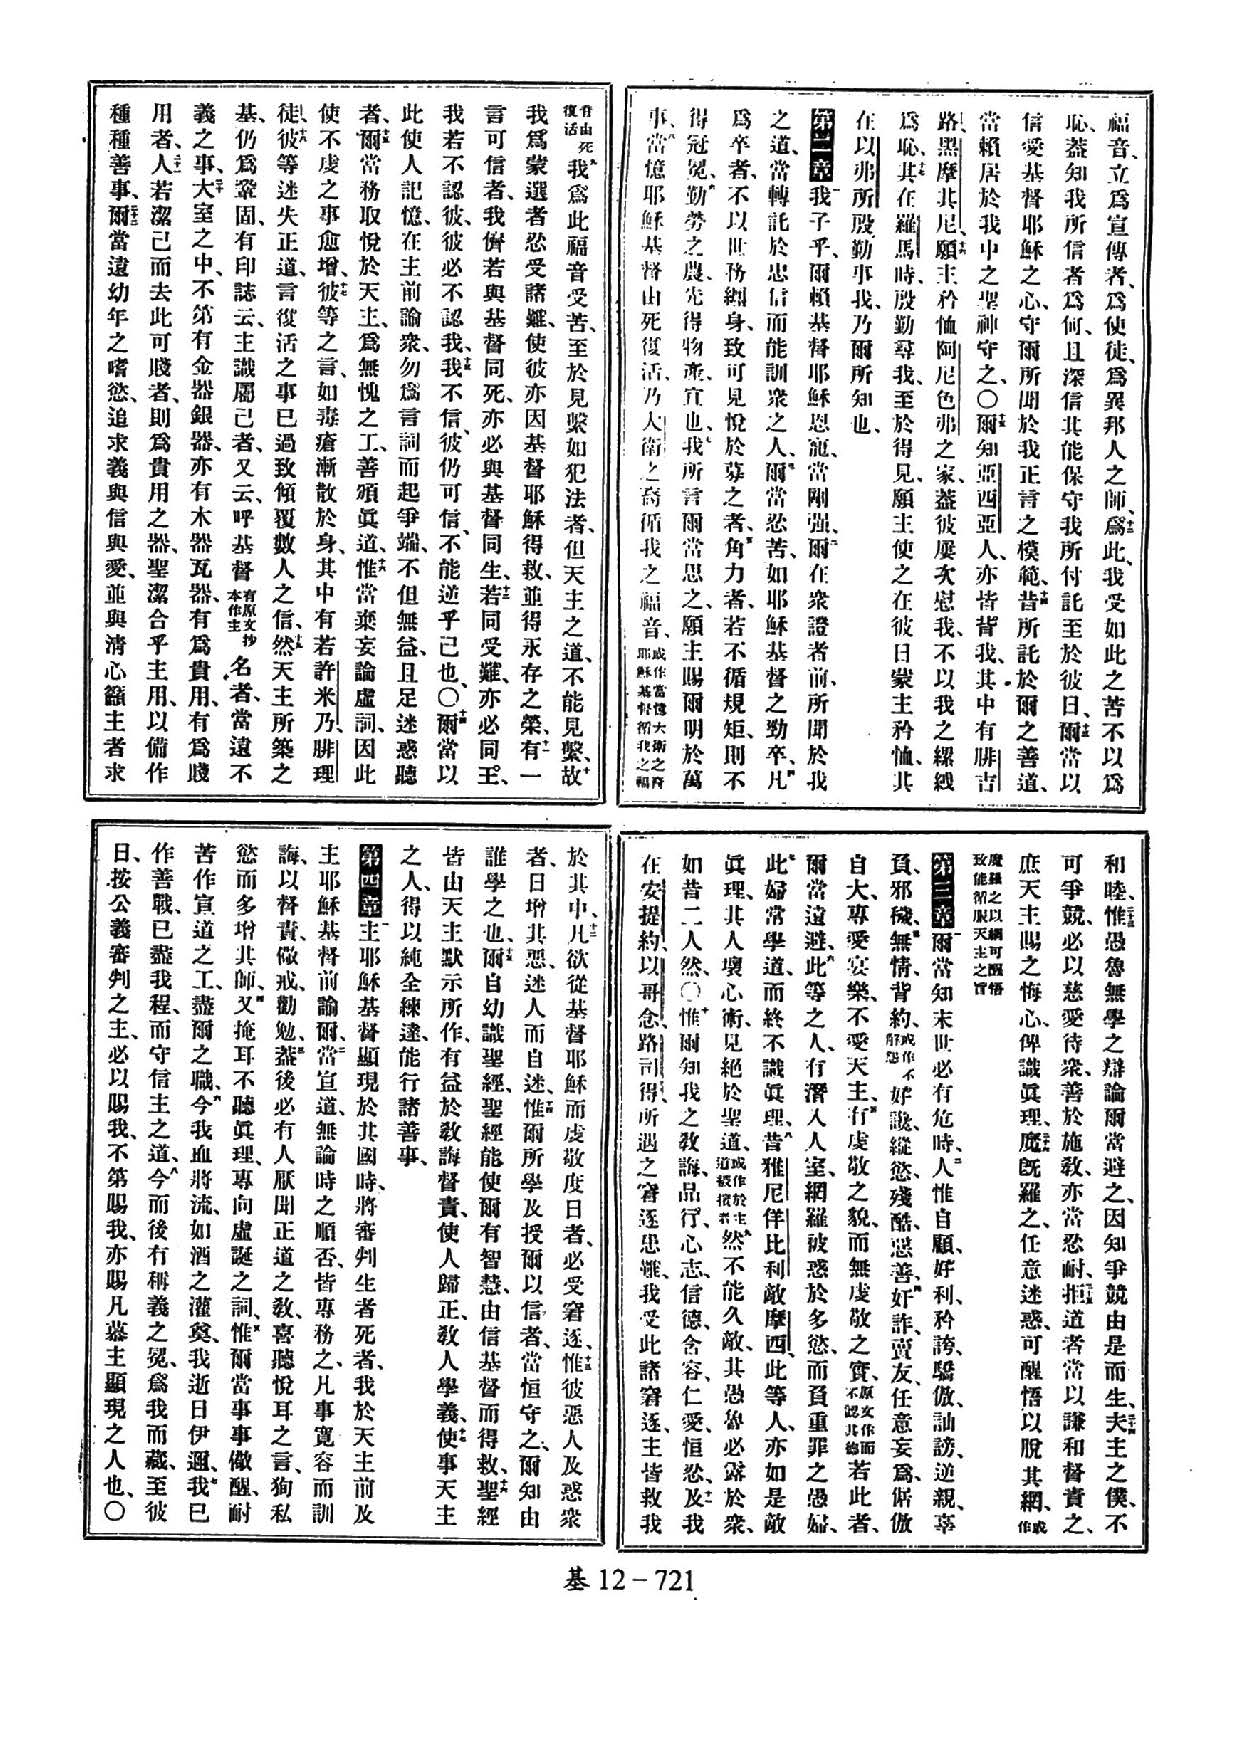 福音、立爲宣傳者、爲使徒、爲異邦人之師、爲此、我受如此之苦不以爲
恥、蓋知我所信者爲何、且深信其能保守我所付託至於彼日、爾當以
信愛基督耶穌之心、守爾所聞於我正言之模範、昔所託於爾之善道、
當賴居於我中之聖神守之、〇爾知亞西亞人、亦皆背我、其中有腓吉
路、黑摩其尼、願主矜恤阿尼色弗之家、蓋彼屢次慰我、不以我之縲絏
爲恥、其在羅馬時、殷勤尋我、至於得見、願主使之在彼日蒙主矜恤、其
在以弗所殷勤事我、乃爾所知也、
第二章我子乎、爾賴基督耶穌恩寵、當剛强、爾在衆證者前、所聞於我
之道、當轉託於忠信而能訓衆之人、爾當忍苦、如耶穌基督之勁卒、凡
爲卒者、不以世務綑身、致可見悅於募之者、角力者、若不循規矩、則不
得冠冕、勤勞之農、先得物產、宜也、我所言爾當思之、願主賜爾明於萬
事、當憶耶穌基督由死復活、乃大衛之裔、循我之福音、或作當憶大衛之裔耶穌基督循我之福
音由死復活我爲此福音受苦、至於見繫如犯法者、但天主之道、不能見繫、故
我爲蒙選者忍受諸難、使彼亦因基督耶穌得救、並得永存之榮、有一
言可信者、我儕若與基督同死、亦必與基督同生、若同受難、亦必同王、
我若不認彼、彼必不認我、我不信、彼仍可信、不能逆乎己也、〇爾當以
此使人記憶、在主前諭衆、勿爲言詞而起爭端、不但無益、且足迷惑聽
者、爾當務取悅於天主、爲無愧之工、善頒眞道、惟當棄妄論虛詞、因此
使不虔之事愈增、彼等之言、如毒瘡漸散於身、其中有若許米乃、腓理
徒、彼等迷失正道、言復活之事已過、致傾覆數人之信、然天主所築之
基、仍爲鞏固、有印誌云、主識屬己者、又云、呼基督有原文抄本作主名者、當遠不
義之事、大室之中、不第有金器銀器、亦有木器瓦器、有爲貴用、有爲賤
用者、人若潔己而去此可賤者、則爲貴用之器、聖潔合乎主用、以備作
種種善事、爾當遠幼年之嗜慾、追求義與信與愛、並與清心籲主者求
和睦、惟愚魯無學之辯論爾當避之、因知爭競由是而生、夫主之僕、不
可爭競、必以慈愛待衆、善於施敎、亦當忍耐、拒道者當以謙和督責之、
庶天主賜之悔心、俾識眞理、魔旣羅之、任意迷惑、可醒悟以脫其網、或作
魔羅之以網可醒悟致能循服天主之旨
第三章爾當知末世必有危時、人惟自顧、好利、矜誇、驕傲、訕謗、逆親、辜
負、邪穢、無情、背約、或作不解怨好讒、縱慾、殘酷、惡善、奸詐、賣友、任意妄爲、倨傲
自大、專愛宴樂、不愛天主、有虔敬之貌、而無虔敬之實、原文作而不認其德若此者、
爾當遠避、此等之人、有潛入人室、網羅被惑於多慾、而負重罪之愚婦、
此婦常學道、而終不識眞理、昔雅尼佯比利敵摩西、此等人、亦如是敵
眞理、其人壞心術、見絕於聖道、或作於主道被擯者然不能久敵、其愚魯必露於衆、
如昔二人然、〇惟爾知我之敎誨、品行、心志、信德、含容、仁愛、恒忍、及我
在安提約、以哥念、路司得、所遇之窘逐患難、我受此諸窘逐、主皆救我
於其中、凡欲從基督耶穌而虔敬度日者、必受窘逐、惟彼惡人及惑衆
者、日增其惡、迷人而自迷、惟爾所學及授爾以信者、當恒守之、爾知由
誰學之也、爾自幼識聖經、聖經能使爾有智慧、由信基督而得救、聖經
皆由天主默示所作、有益於敎誨督責、使人歸正、敎人學義、使事天主
之人、得以純全練達、能行諸善事、
第四章主耶穌基督顯現於其國時、將審判生者死者、我於天主前及
主耶穌基督前諭爾、當宣道、無論時之順否、皆專務之、凡事寬容而訓
誨、以督責、儆戒、勸勉、蓋後必有人厭聞正道之敎、喜聽悅耳之言、狥私
慾而多增其師、又掩耳不聽眞理、專向虛誕之詞、惟爾當事事儆醒、耐
苦作宣道之工、盡爾之職、今我血將流、如酒之灌奠、我逝日伊邇、我已
作善戰、已盡我程、而守信主之道、今而後有稱義之冕、爲我而藏、至彼
日、按公義審判之主、必以賜我、不第賜我、亦賜凡慕主顯現之人也、〇
基12–721